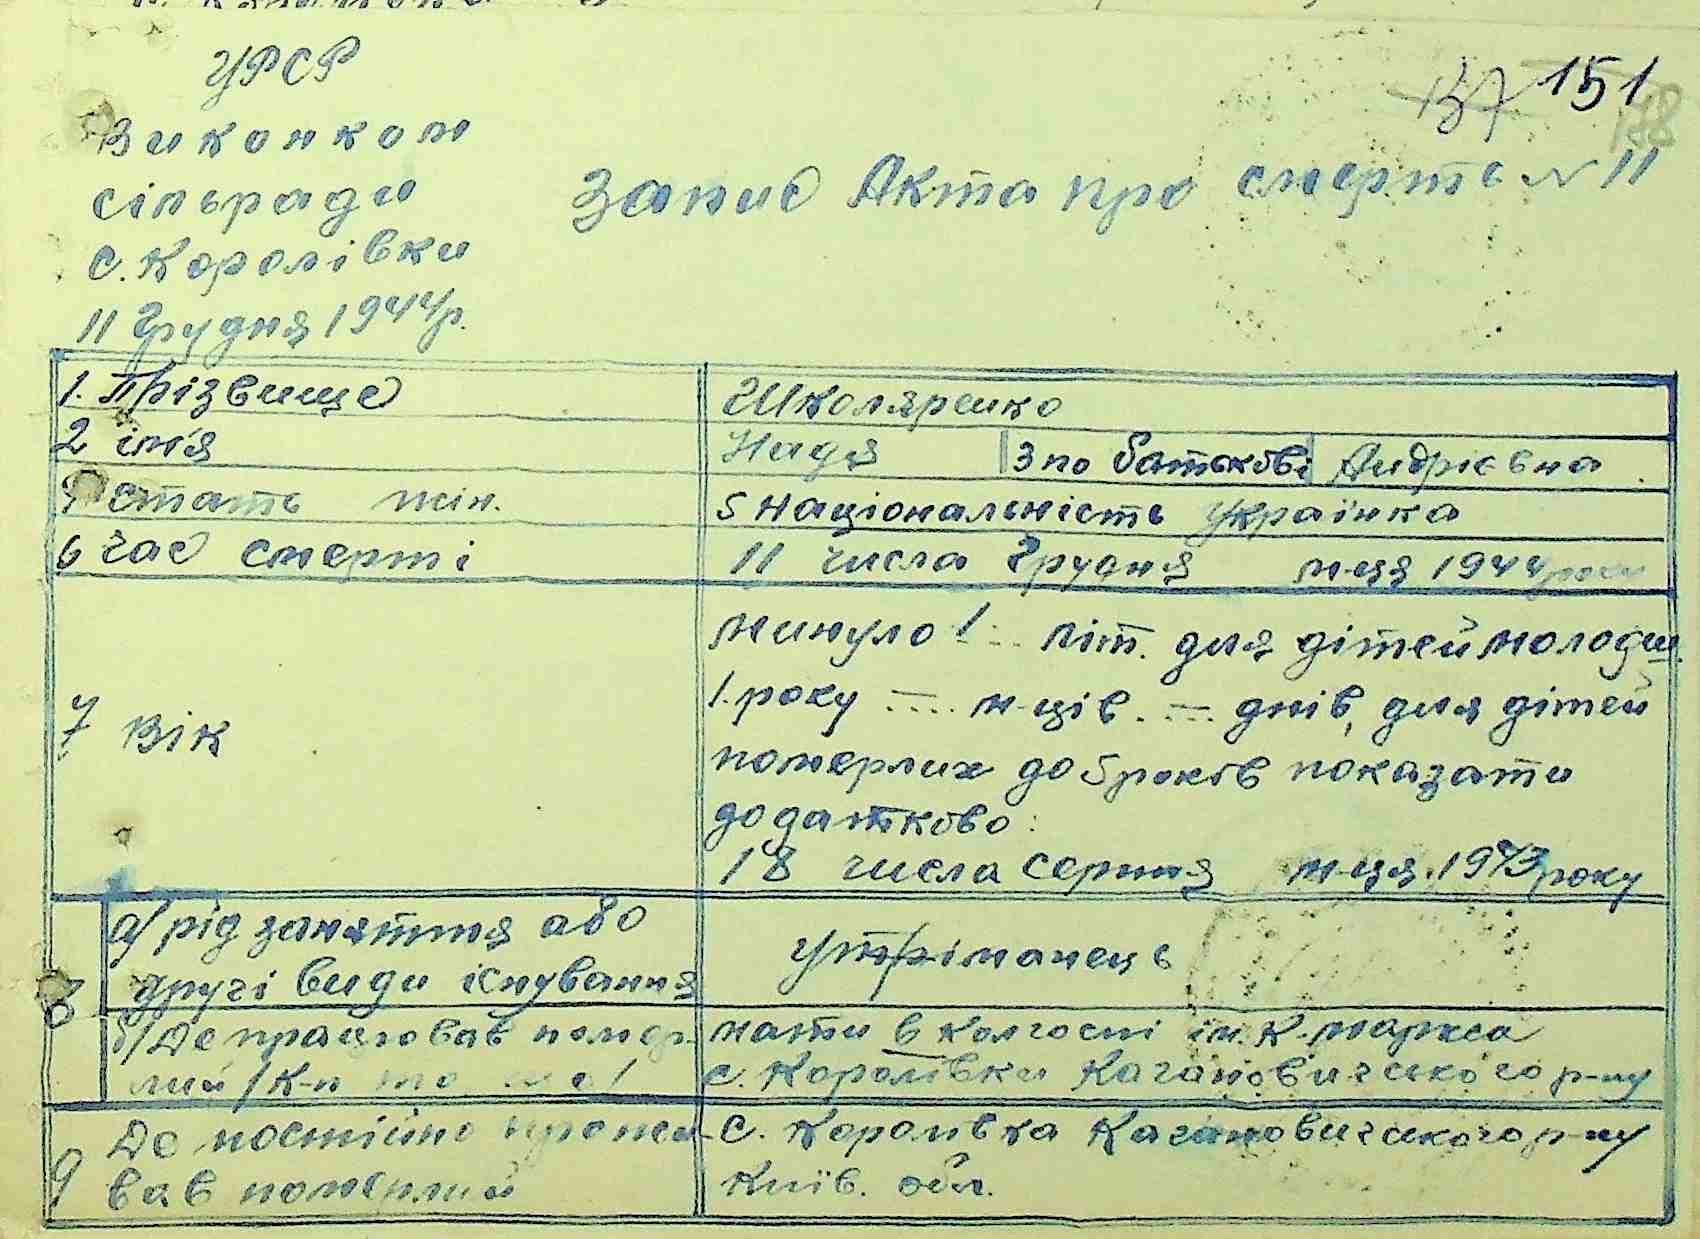 УРСР
Виконком
сільради
с. Королівки
11 Грудня 1944 р.
137 151
Запис Акта про смерть № 11
1. Прізвище Школяренко
2 ім'я Надя 3 по батькові Андрієвна
4 стать жін. 5 Національність Українка
6 Час смерті 11 числа Грудня м-ця 1944 року
7 Вік
минуло 1 літ. для дітей молодш.
1. року — м-ців. — днів, для дітей
померлих до 5 років показати
додатково:
18 числа серпня м-ця. 1943 року
8 а/ рід заняття або
другі види існування
Утріманець
б/ Де працював помер-
лий /К-п
мати в колгоспі ім. К. Маркса
с. Королівки Кагановичського р-ну
9 Де постійно прожи-
вав померлий
с. Королівка Кагановичського р-ну
Київ. обл.